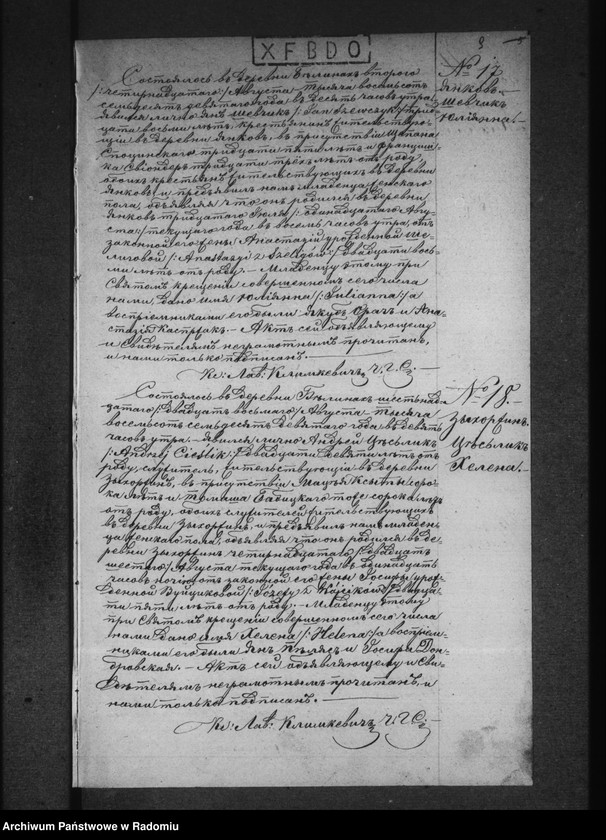 XFBDO
9
5
№ 17
Янковъ.
Шевчикъ
Юліянна.
Состоялось въ деревни Бѣлинахъ втораго
/:четырнадцатаго:/ Августа тысяча восемьсотъ
семьдесятъ девятаго года въ десять часовъ утра.
явился лично Янъ Шевчикъ /: Jan Szewczyk:/ трид-
цати восьми лѣтъ, крестьянинъ жительствую-
щій въ деревни Янковъ, въ присутствіи Щепана
тридцати пяти лѣтъ и Францищ-
ка тридцати трехъ лѣтъ отъ роду
обоихъ крестьянъ жительствующихъ въ деревни
Янковъ и предъявилъ намъ младенца женскаго
пола, объявляя что онъ родился въ деревни
Янковъ тридцатаго Іюля /: одинадцатаго Авгу-
ста:/ текущаго года въ восемь часовъ утра, отъ
законной его жены Анастазіи урожденной Ше-
лиговой /: Anastazyi z Szeligów:/ двадцати вось-
ми лѣтъ отъ роду. — Младенцу этому при
Святомъ крещеніи совершенномъ сего числа
нами, дано имя Юліянна /: Julianna:/ а
воспріемниками его были Якубъ и Ана-
стазія Каспржакъ. — Актъ сей объявляющему
и свидѣтелямъ неграмотнымъ прочитанъ,
и нами только подписанъ. —
Кс: Лав: Климкевичъ Ч. Г. С. —
№ 18.
Зыхоржинъ.
Цѣсьликъ
Хелена.
Состоялось въ деревни Бѣлинахъ шестьнад-
цатаго /: двадцать восьмаго:/ Августа тысяча
восемьсотъ семьдесятъ девятаго года въ девять
часовъ утра. — Явился лично Андрей Цѣсьликъ
/: Andrzej Cieślik:/ двадцати девяти лѣтъ отъ
роду, служитель, жительствующій въ деревни
Зыхоржинъ, въ присутствіи Мацѣя соро-
ка лѣтъ и Томаша Гадицкаго тоже сорока лѣтъ
отъ роду, обоихъ служителей жительствующихъ
въ деревни Зыхоржинъ, и предъявилъ намъ младен-
ца женскаго пола, объявляя что онъ родился въ де-
ревни Зыхоржинъ четырнадцатаго /: двадцать
шестаго:/ Августа текущаго года въ одинадцать
часовъ ночи отъ законной его жены Іосифы урож-
денной Вуйциковой /: Józefy z Wójcików:/ двадца-
ти пяти лѣтъ отъ роду. — Младенцу этому
при Святомъ крещеніи совершенномъ сего числа
нами дано имя Хелена /: Helena:/ а воспріем-
никами его были Янъ и Іосифа Дом-
бровская. — Актъ сей объявляющему и сви-
дѣтелямъ неграмотнымъ прочитанъ, и
нами только подписанъ. —
Кс: Лав: Климкевичъ Ч. Г. С. —
Archiwum Państwowe w Radomiu